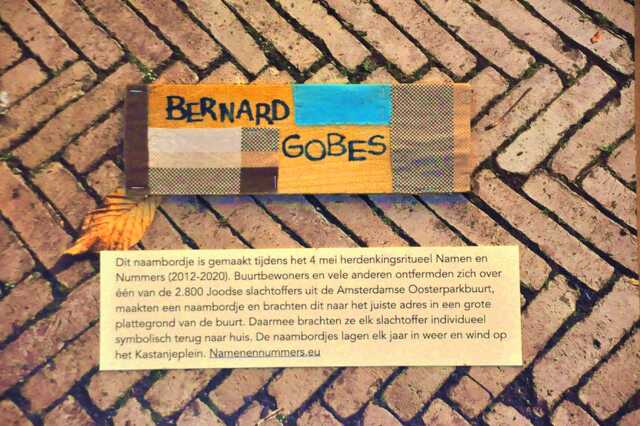 BERNARD
GOBES
Dit naambordje is gemaakt tijdens het 4 mei herdenkingsritueel Namen en
Nummers (2012-2020). Buurtbewoners en vele anderen ontfermden zich over
één van de 2.800 Joodse slachtoffers uit de Amsterdamse Oosterparkbuurt,
maakten een naambordje en brachten dit naar het juiste adres in een grote
plattegrond van de buurt. Daarmee brachten ze elk slachtoffer individueel
symbolisch terug naar huis. De naambordjes lagen elk jaar in weer en wind op
het Kastanjeplein. Namenennummers.eu